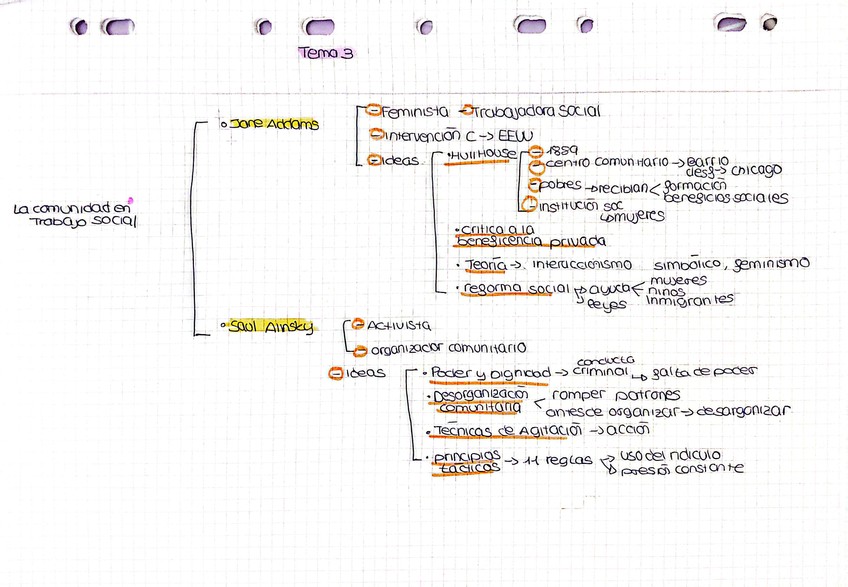 Tema 3
La comunidad en
Trabajo social
Jane Addams
Feminista - Trabajadora social
Intervención C → EEUU
ideas
• Hull House
1889
centro comunitario → barrio
desf → chicago
pobres → recibian < formación
beneficios sociales
institución soc
↳ mujeres
• critica a la
beneficencia privada
• Teoría → interaccionismo simbólico, feminismo
• reforma social → ayuda < mujeres
niños
inmigrantes
leyes
Saul Alinsky
Activista
organizador comunitario
ideas
• Poder y Dignidad → conducta
criminal ↳ falta de poder
• Desorganización
comunitaria < romper patrones
antes de organizar → desargonizar
• Técnicas de Agitación → acción
• principios
tácticos → 11 reglas → uso del ridiculo
presión constante